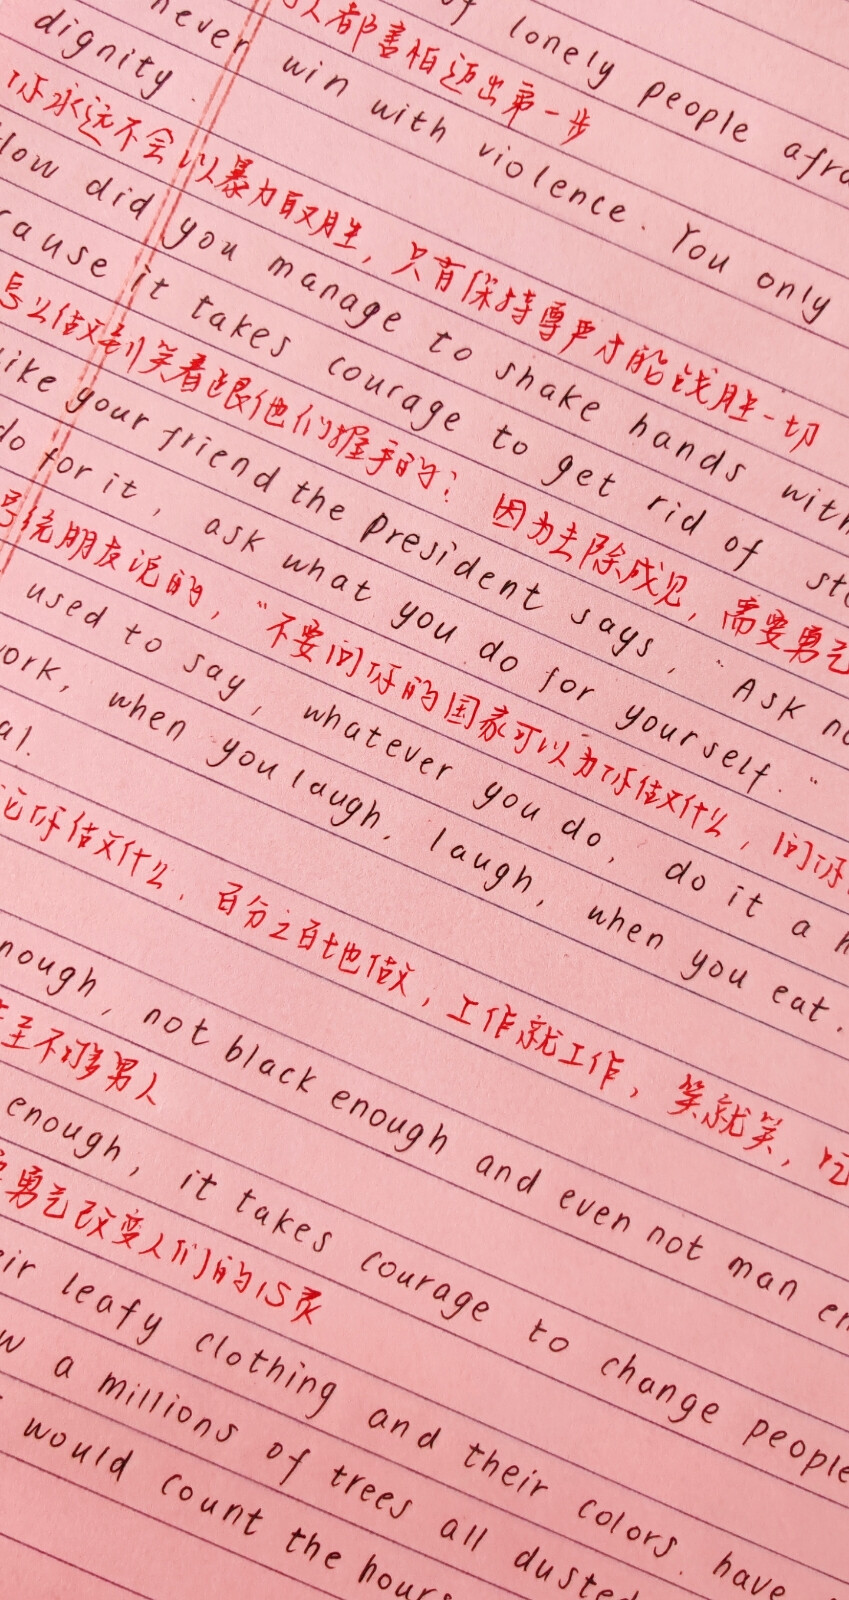 lonely people
人都害怕迈出第一步
never win with violence. You only
dignity.
你永远不会以暴力取胜，只有保持尊严才能战胜一切
did you manage to shake hands with
it takes courage to get rid of
么做到笑着跟他们握手的？因为去除成见，需要勇气
your friend the president says, "Ask
do for it, ask what you do for yourself."
统朋友说的，"不要问你的国家可以为你做什么，问你
used to say, whatever you do, do it a
when you laugh, laugh, when you eat.
你做什么，百分之百地做，工作就工作，笑就笑，吃
not black enough and even not man
至不够男人
enough, it takes courage to change people
勇气改变人们的心灵
leafy clothing and their colors. have
a millions of trees all dusted
would count the hours